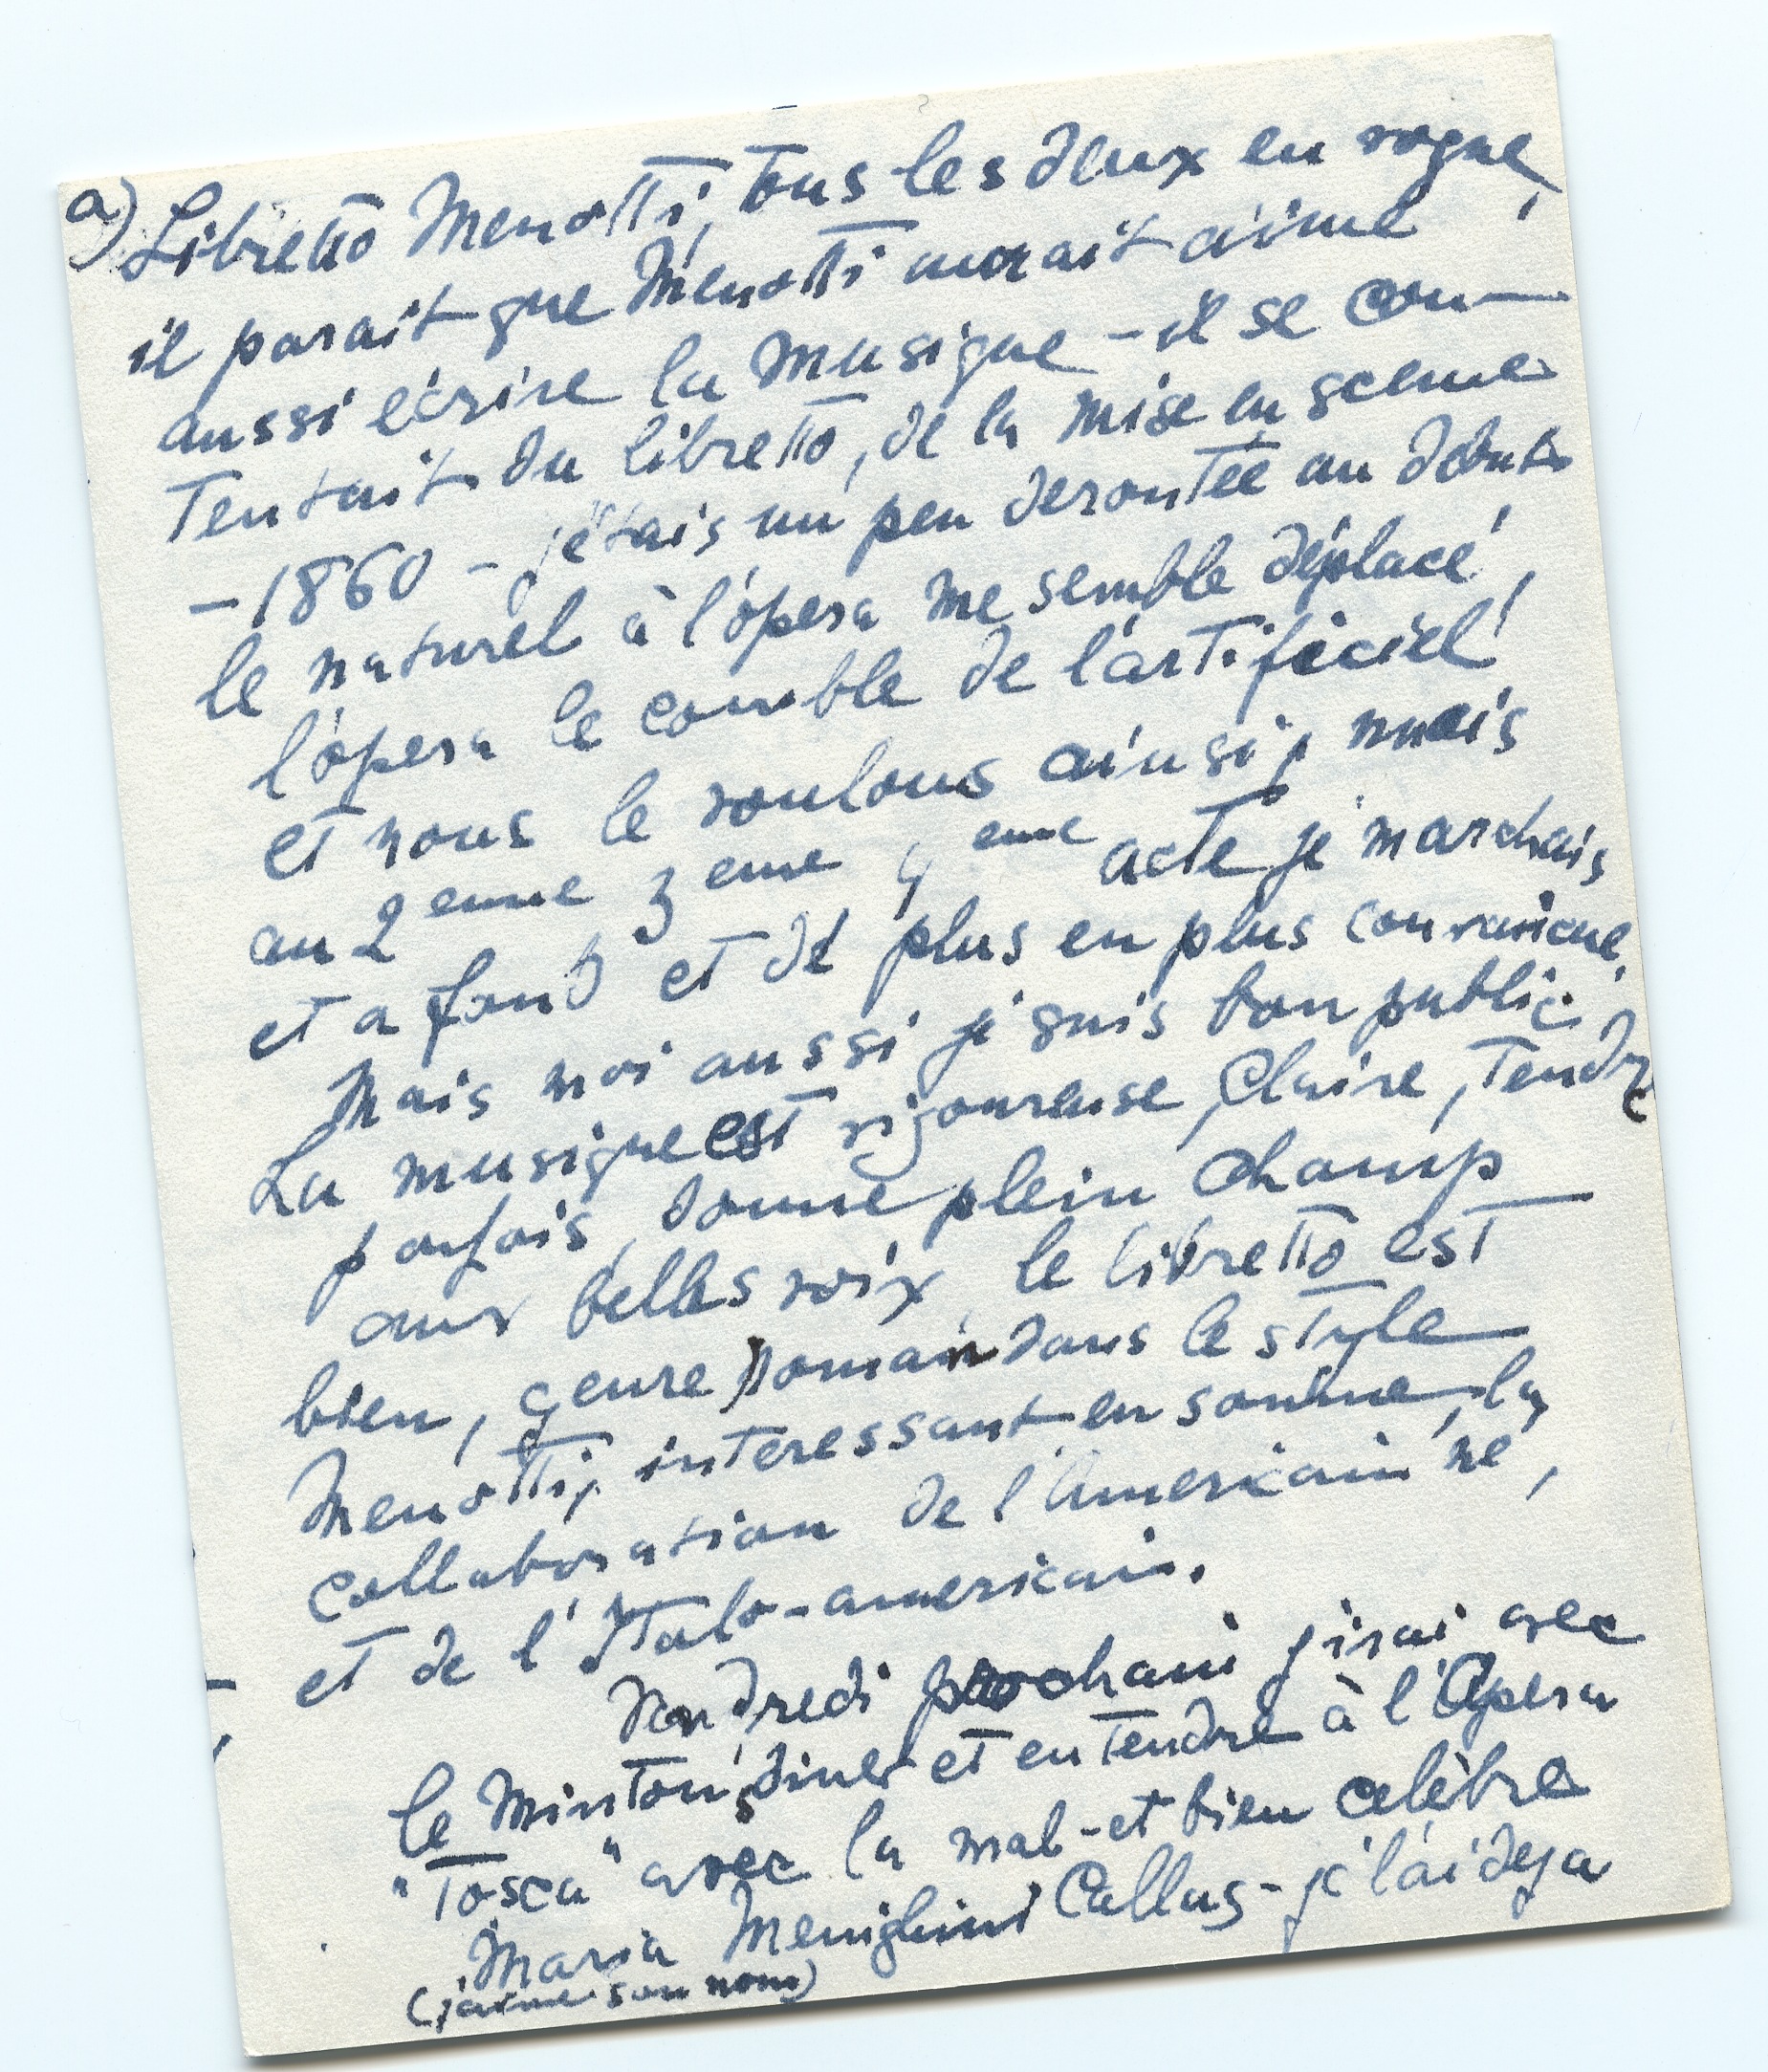 a) Libretto Menotti, tous les deux en vogue,
il parait que Menotti aurait aimé
aussi écrire la musique - il se con-
tentait du libretto, de la mise en scene
- 1860 - j'étais un peu deroutée au début
le naturel à l'opera me semble déplacé,
l'opera le comble de l'artificiel,
et nous le voulons ainsi, mais
au 2 eme 3 eme 4 eme acte je marchais
et a fond et de plus en plus convaincue.
Mais moi aussi je suis bon public.
La musique est vigoureuse, Claire, tendre
parfois, donne plein champ
aux belles voix, le libretto est
bien, genre roman dans le style
Menotti, interessant en somme, la
collaboration de l'Americain né,
et de l'Italo-americain.
Vendredi prochain j'irai avec
le Minton's diner et entendre à l'Opera
"Tosca" avec la mal-et bien celèbre
Maria Menighini Callas - je l'ai deja
(j'aime son nom)